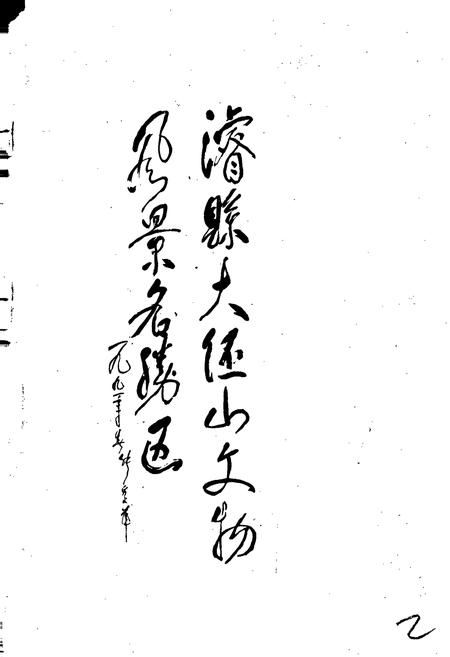 濬縣大伾山文物
風景名勝區
一九九一年